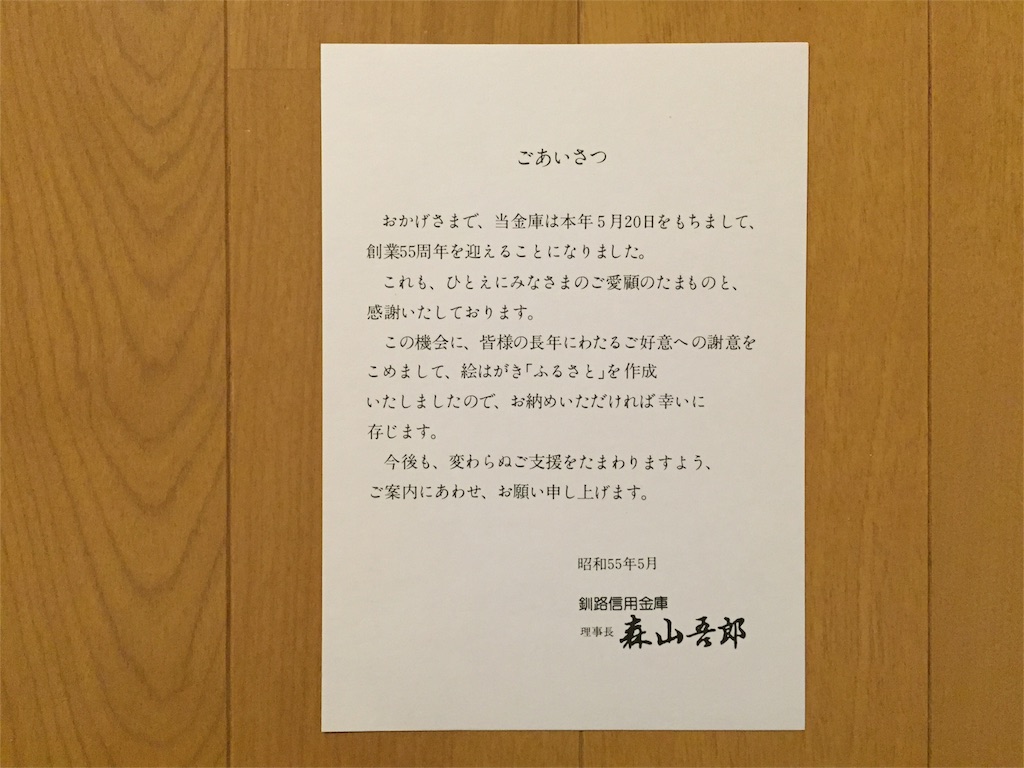 ごあいさつ
おかげさまで、当金庫は本年5月20日をもちまして、
創業55周年を迎えることになりました。
これも、ひとえにみなさまのご愛顧のたまものと、
感謝いたしております。
この機会に、皆様の長年にわたるご好意への謝意を
こめまして、絵はがき「ふるさと」を作成
いたしましたので、お納めいただければ幸いに
存じます。
今後も、変わらぬご支援をたまわりますよう、
ご案内にあわせ、お願い申し上げます。
昭和55年5月
釧路信用金庫
理事長 森山吾郎